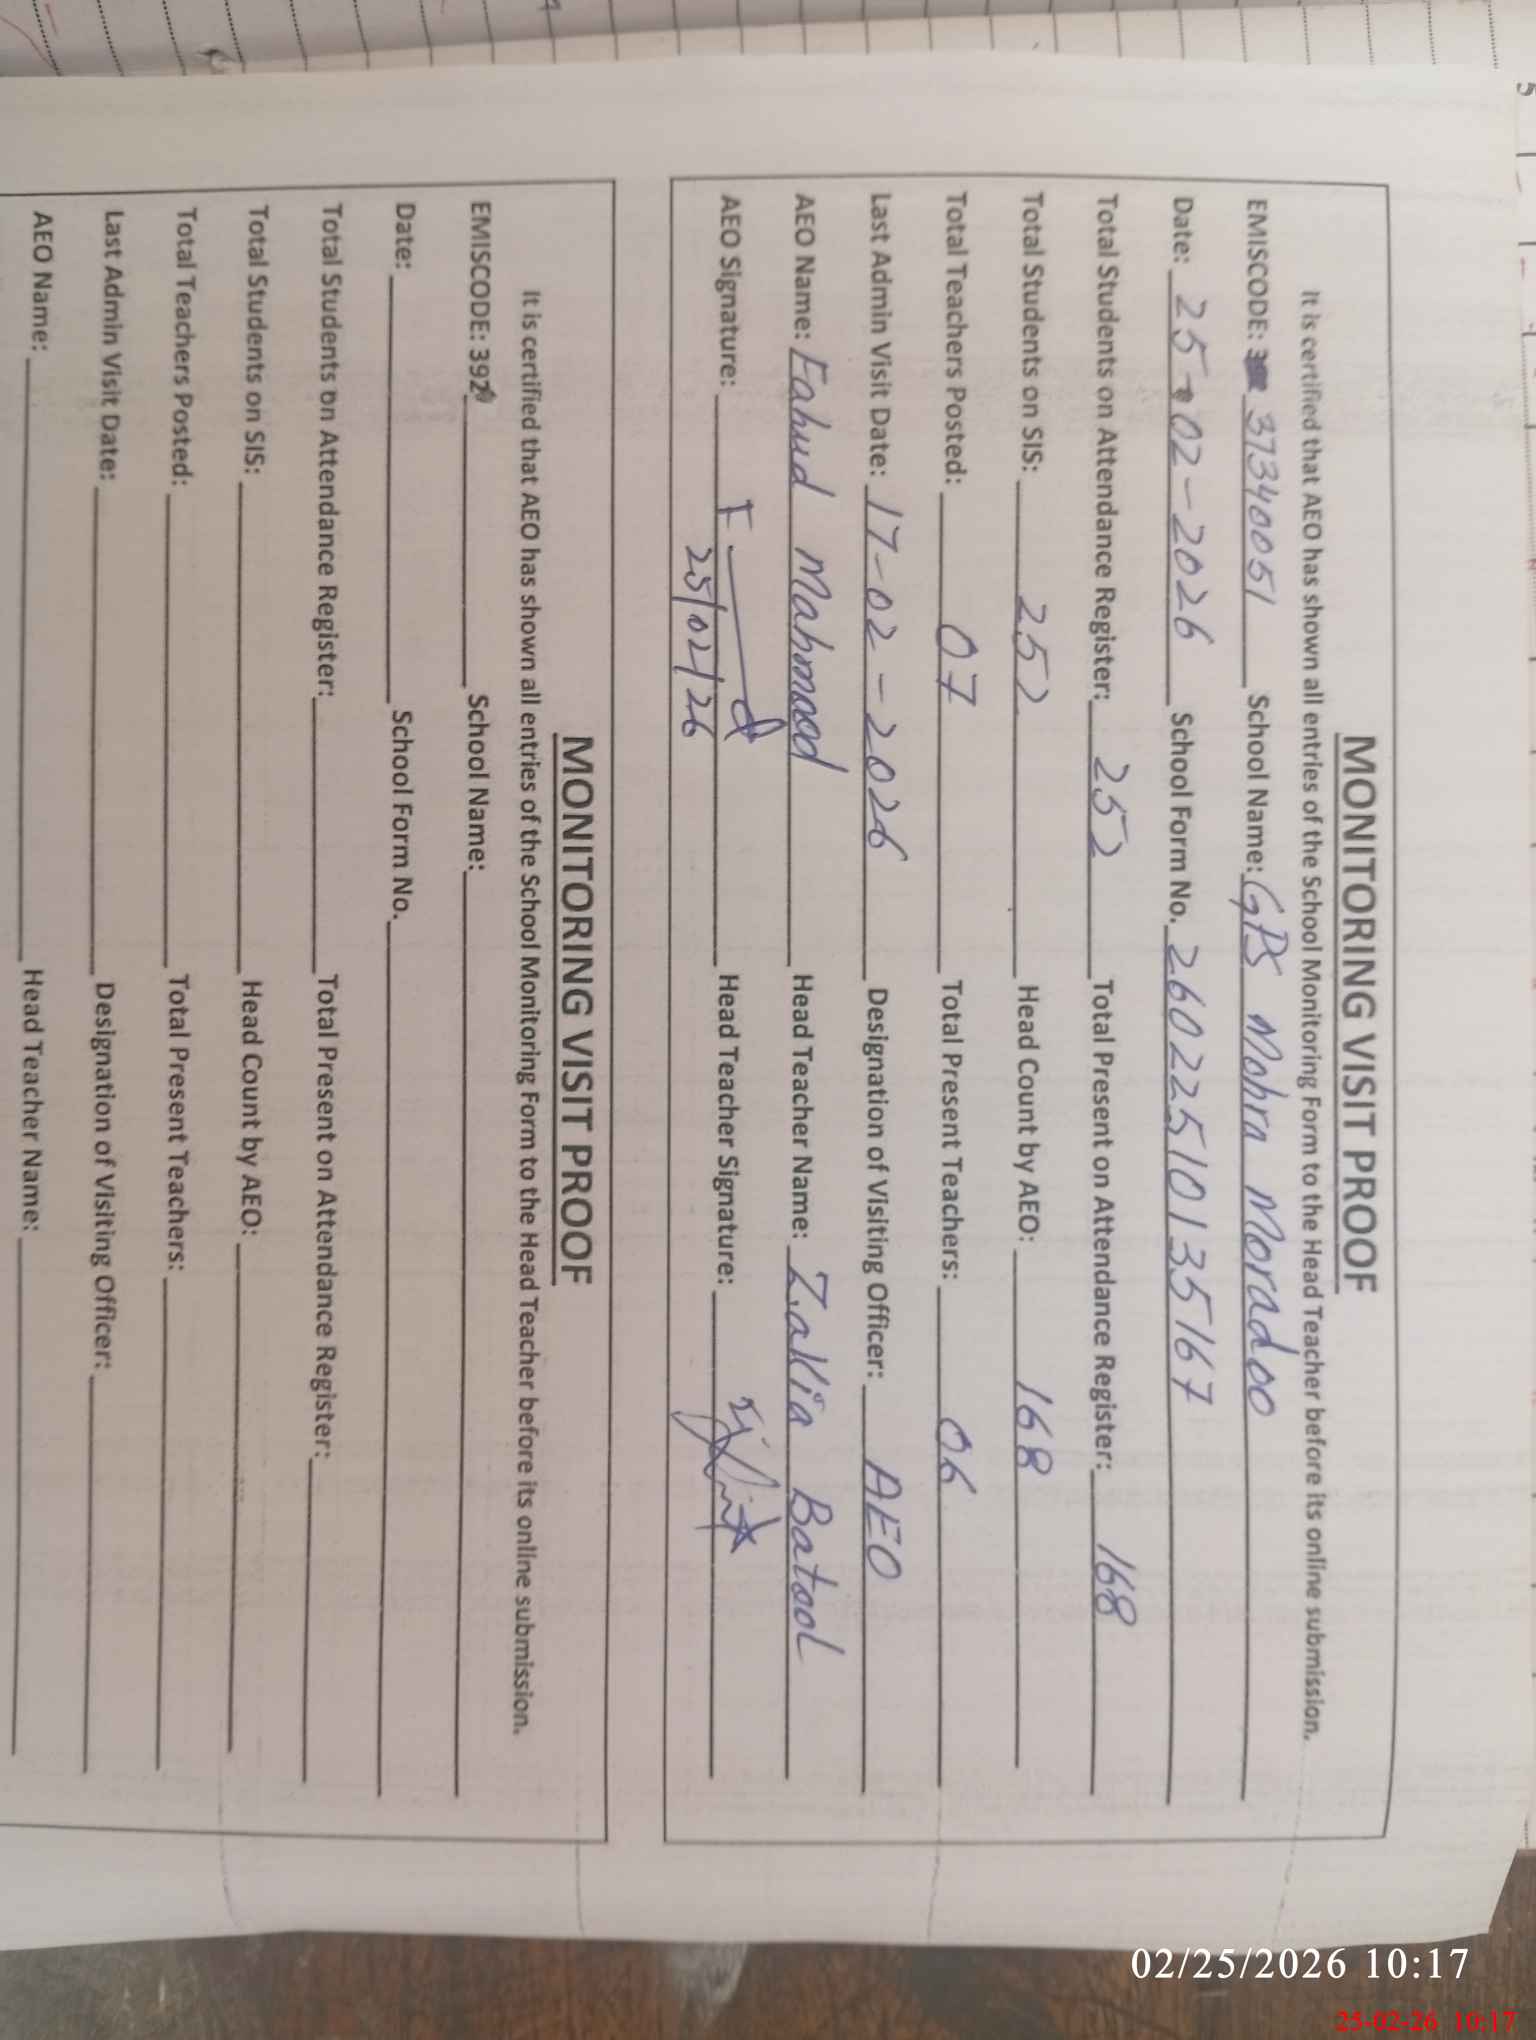 MONITORING VISIT PROOF
It is certified that AEO has shown all entries of the School Monitoring Form to the Head Teacher before its online submission.
EMISCODE: 37340051 School Name: GPS Mohra Moradoo
Date: 25-02-2026 School Form No. 26022510135167
Total Students on Attendance Register: 252 Total Present on Attendance Register: 168
Total Students on SIS: 252 Head Count by AEO: 168
Total Teachers Posted: 07 Total Present Teachers: 06
Last Admin Visit Date: 17-02-2026 Designation of Visiting Officer: AEO
AEO Name: Fahud Mahmood Head Teacher Name: Zakia Batool
AEO Signature: Head Teacher Signature:
25/02/26
MONITORING VISIT PROOF
It is certified that AEO has shown all entries of the School Monitoring Form to the Head Teacher before its online submission.
EMISCODE: 392 School Name:
Date: School Form No.
Total Students on Attendance Register: Total Present on Attendance Register:
Total Students on SIS: Head Count by AEO:
Total Teachers Posted: Total Present Teachers:
Last Admin Visit Date: Designation of Visiting Officer:
AEO Name: Head Teacher Name:
5
02/25/2026 10:17
25-02-26 10:17